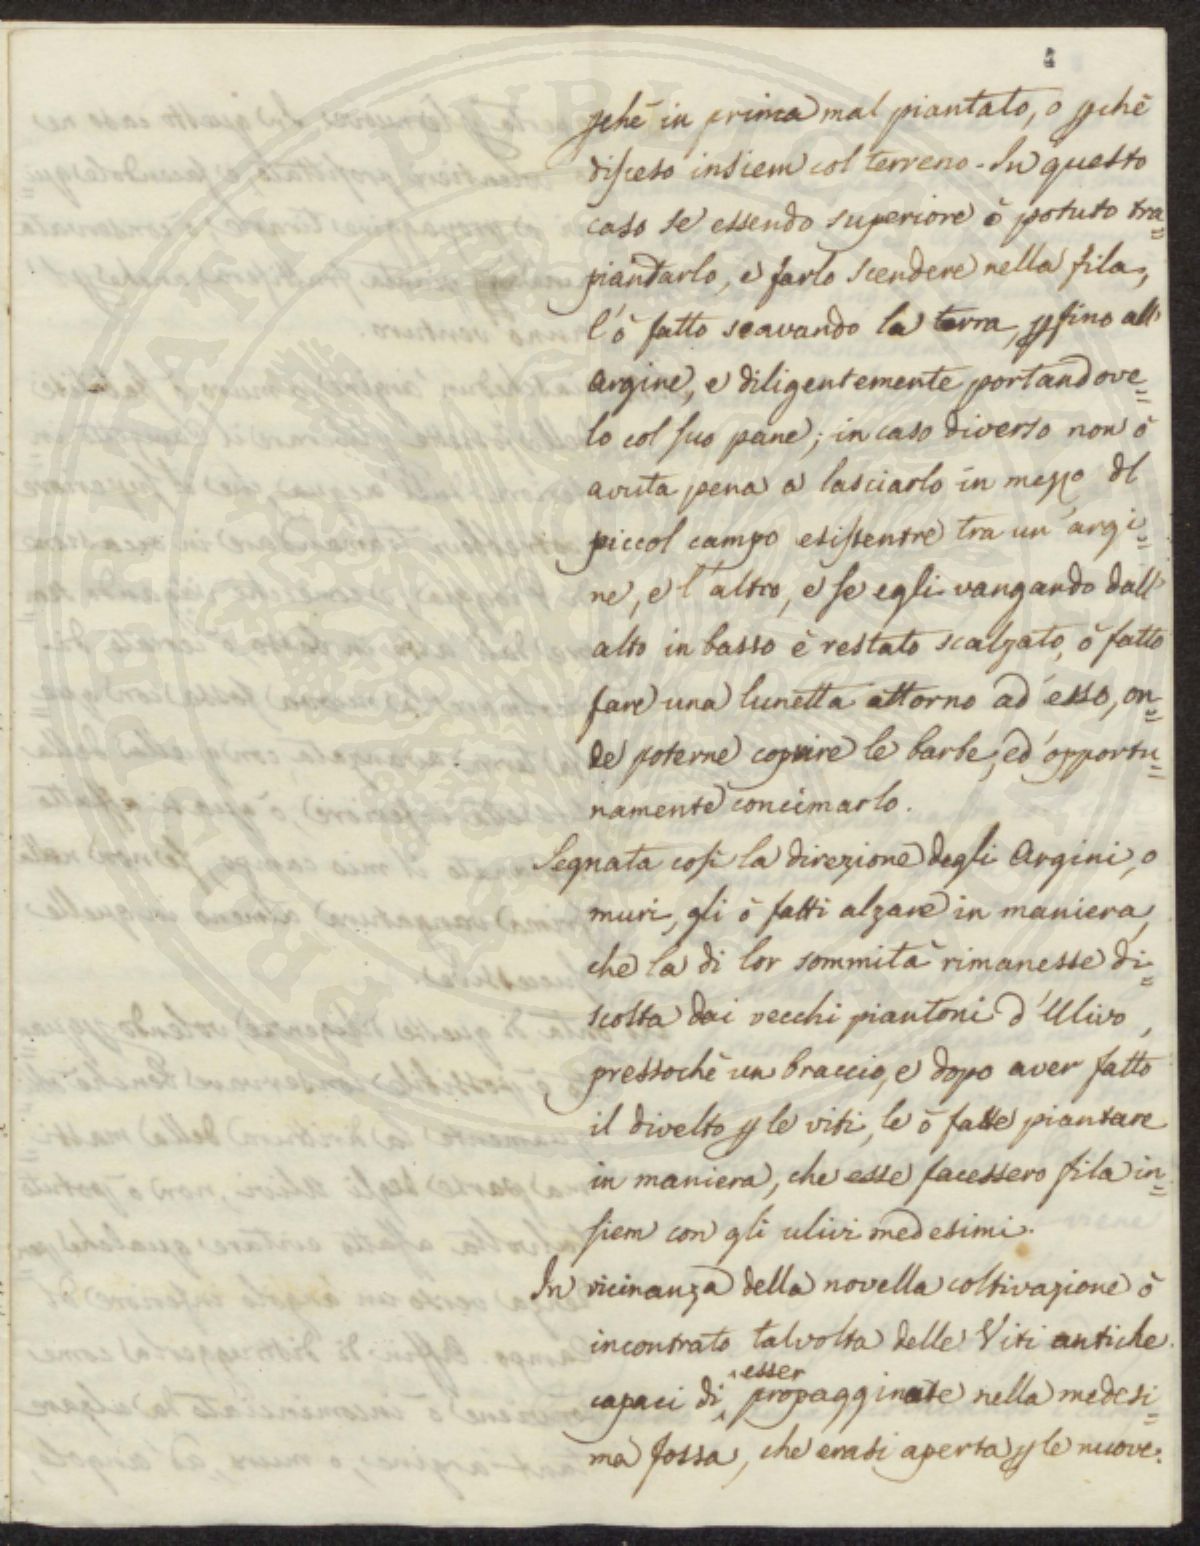 pchè in prima mal piantato, o pchè
disceso insiem col terreno. In questo
caso se essendo superiore ò potuto tra=
piantarlo, e farlo scendere nella fila,
l'ò fatto scavando la terra, pfino all'
Argine, e diligentemente portandove=
lo col suo pane; in caso diverso non ò
avuta pena a lasciarlo in mezzo dl
piccol campo esistentre tra un'argi=
ne, e l'altro, e se egli vangando dall'
alto in basso è restato scalzato, ò fatto
fare una lunetta attorno ad esso, on=
de poterne coprire le barbe, ed opportu=
namente concimarlo.
Segnata così la direzione degli Argini, o
muri, gli ò fatti alzare in maniera,
che la di lor sommità rimanesse di=
scosta dai vecchi piantoni d'Ulivo,
pressochè un braccio, e dopo aver fatto
il divelto p le viti, le ò fatte piantare
in maniera, che esse facessero fila in=
siem con gli ulivi medesimi.
In vicinanza della novella coltivazione ò
incontrato talvolta delle Viti antiche
capaci di esser propagginate nella medesi=
ma fossa, che erasi aperta p le nuove.